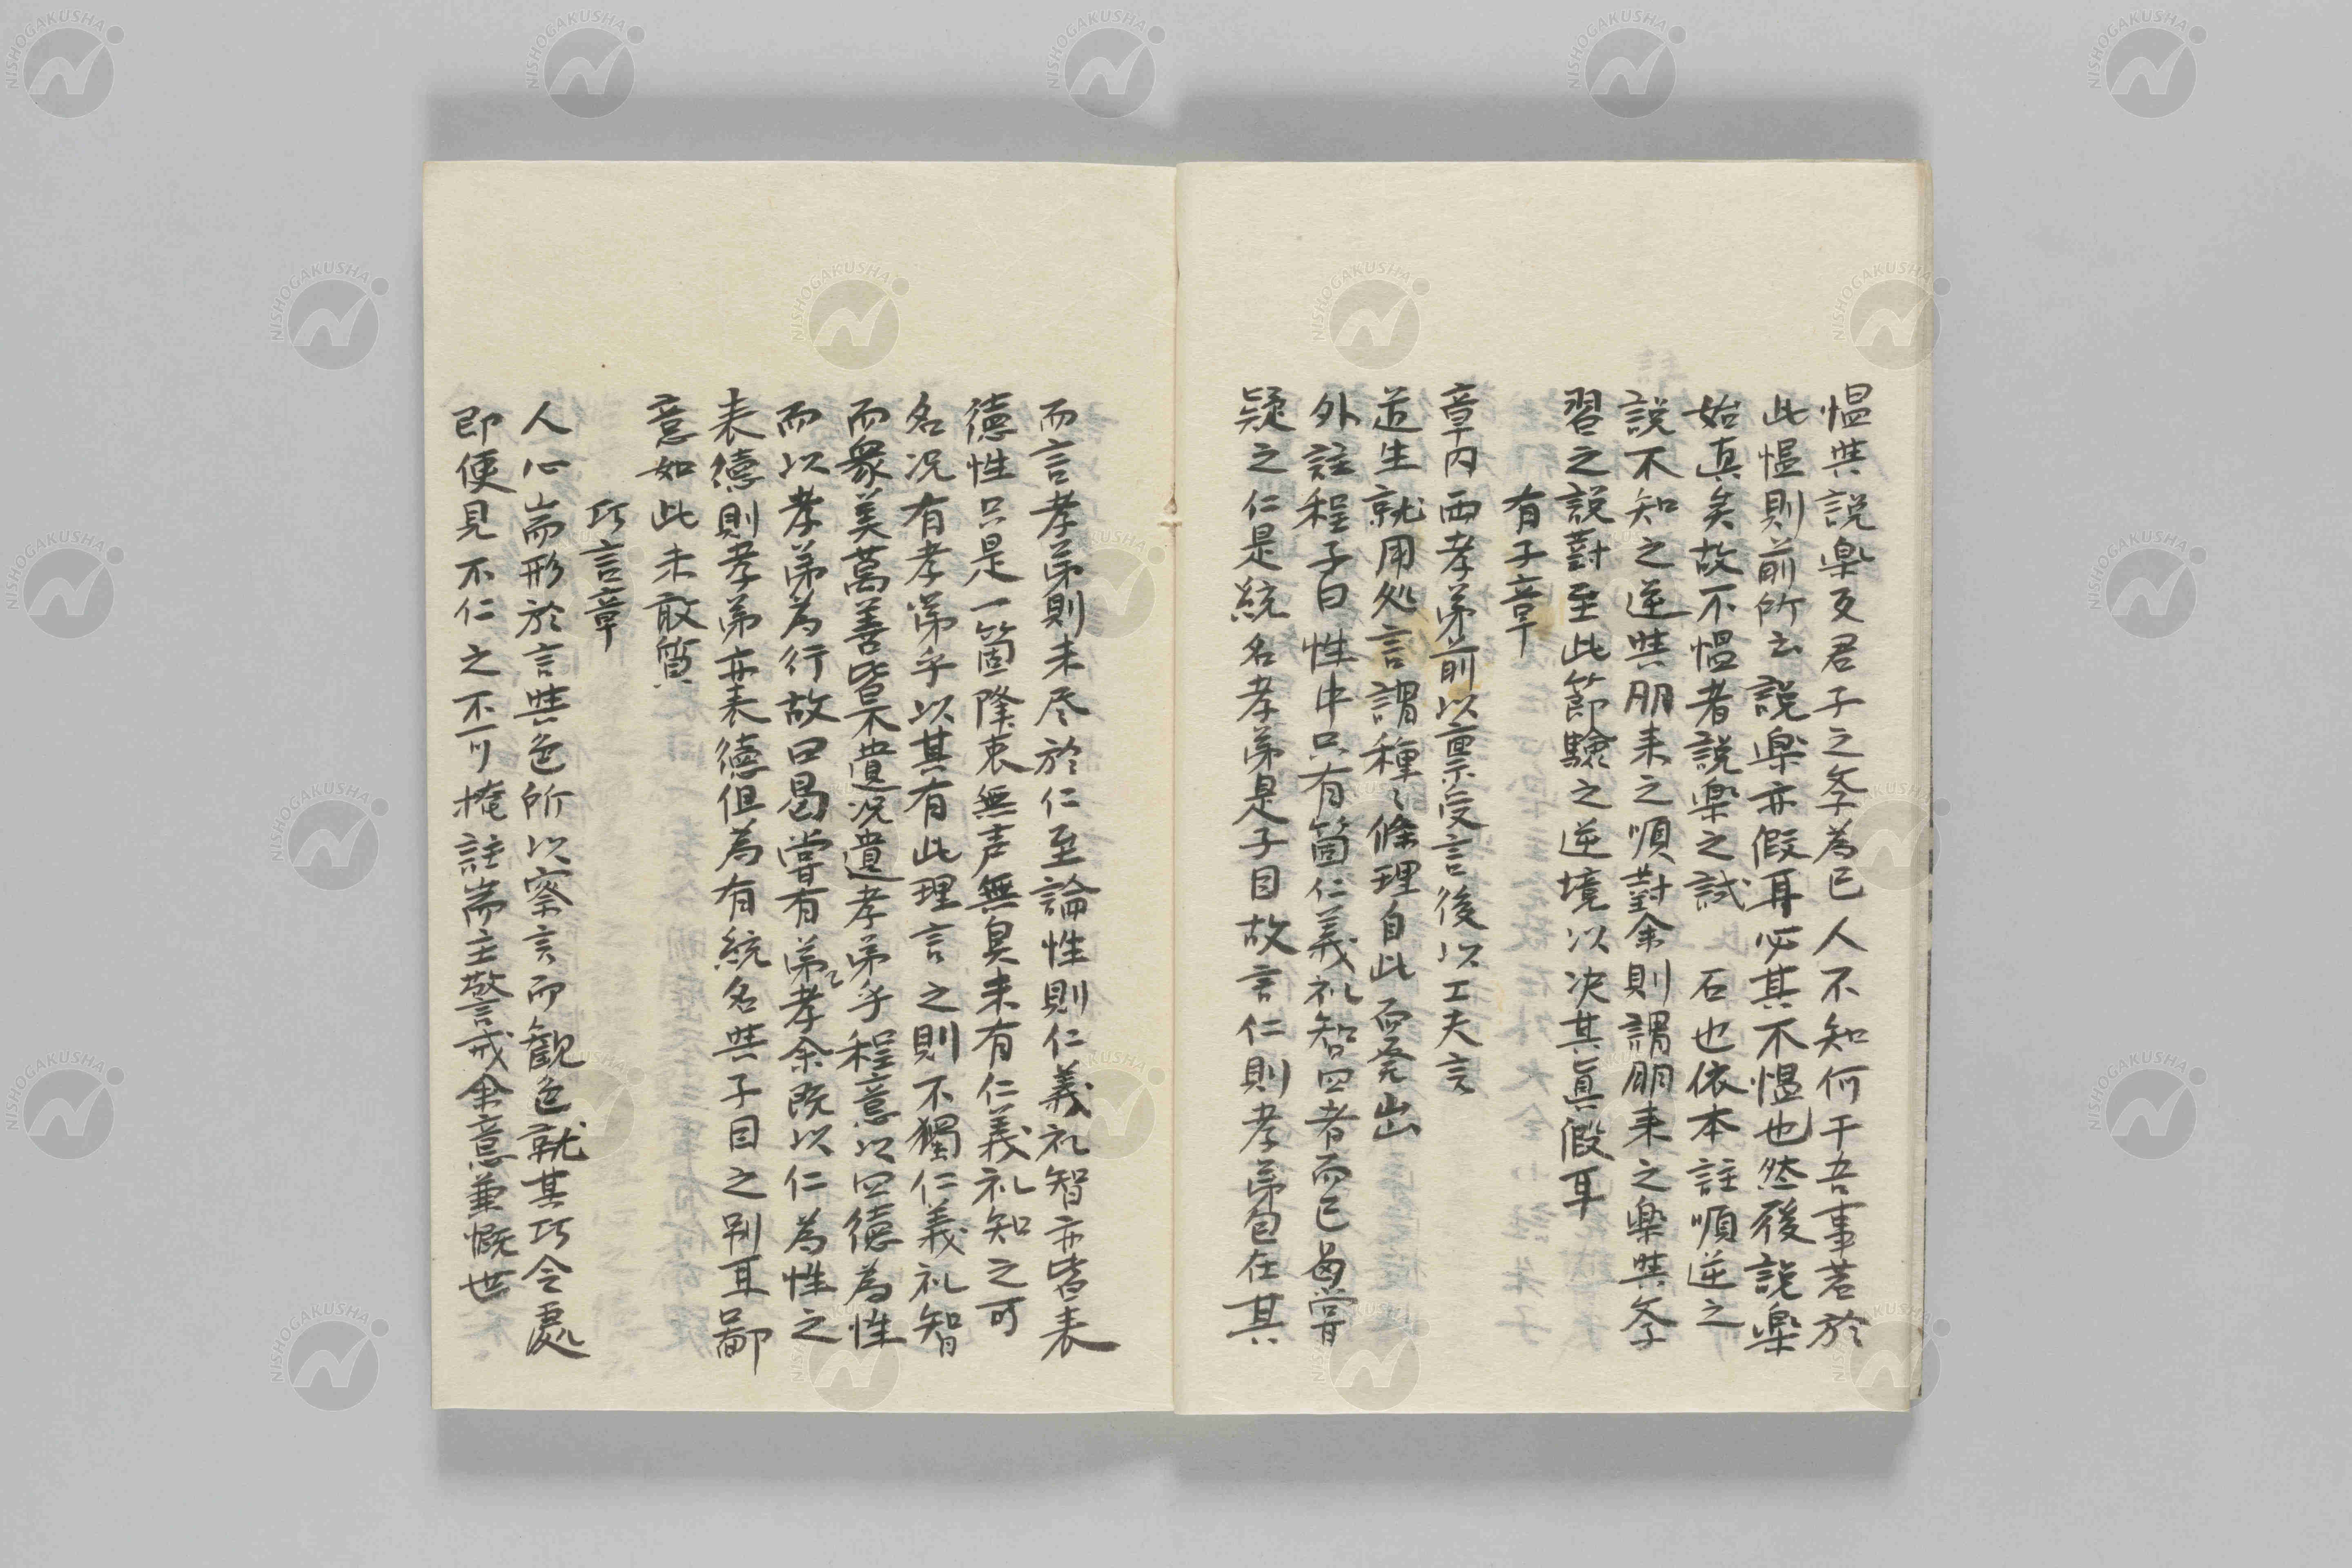 慍与説楽反君子之斈為己人不知何干吾事若於
此慍則前所云説楽亦假耳必其不慍也然後説楽
始真矣故不慍者説楽之試石也依本註順逆之
説不知之逆与朋来之順対余則謂朋来之楽与斈
習之説対至此節験之逆境以决其真假耳
有子章
章内両孝弟前以禀受言後以工夫言
道生就用処言謂種〻條理自此而発出
外註程子曰性中只有箇仁義礼智四者而已曷嘗
疑之仁是統名孝弟是子目故言仁則孝弟包在其
而言孝弟則未尽於仁至論性則仁義礼智亦皆表
徳性只是一箇降衷無声無臭未有仁義礼知之可
名况有孝弟乎以其有此理言之則不獨仁義礼智
而衆美萬善皆不遺况遺孝弟乎程意以四徳為性
而以孝弟為行故曰曷嘗有弟孝余既以仁為性之
表徳則孝弟亦表徳但為有統名与子目之別耳鄙
意如此未敢質
巧言章
人心耑形於言与色所以察言而観色就其巧令處
即便見不仁之不可掩註耑主警戒余意兼慨世
NISHOGAKUSHA